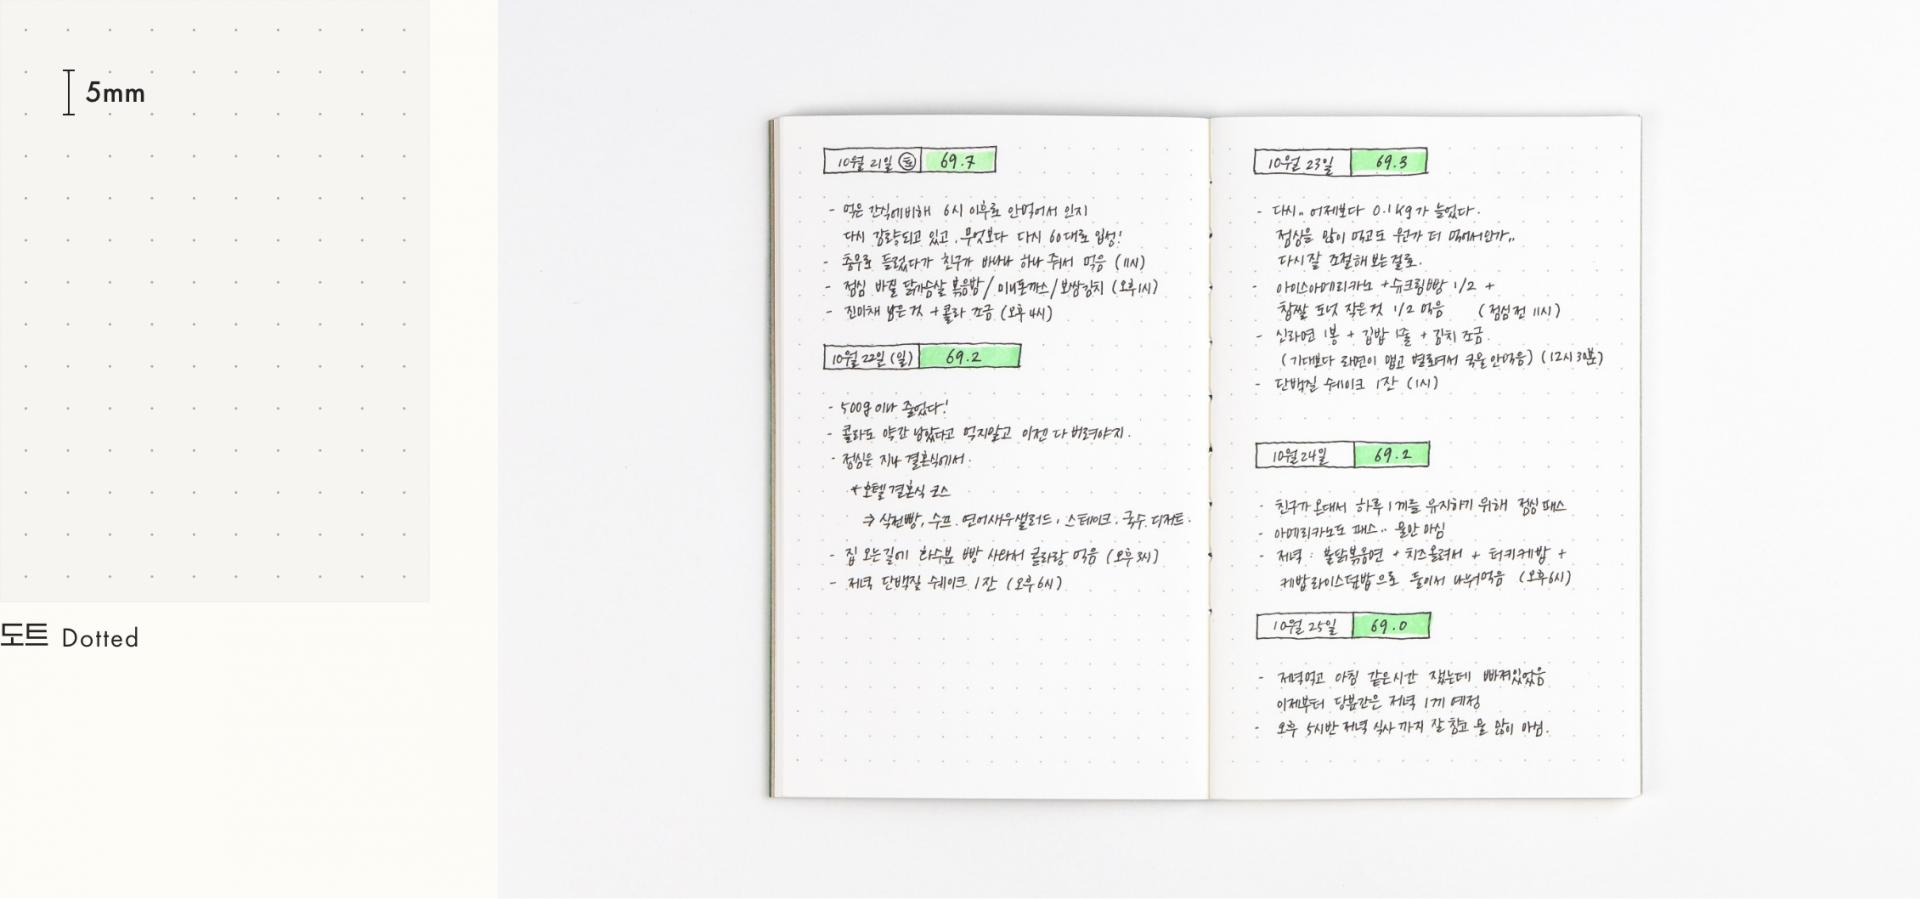 5mm
도트 Dotted
10월 21일 (토) 69.7
- 먹은 간식에 비해 6시 이후로 안먹어서 인지
다시 감량되고 있고, 무엇보다 다시 60대로 입성!
- 충무로 들렀다가 친구가 바나나 하나 줘서 먹음 (11시)
- 점심 바질 닭가슴살 볶음밥 / 미니돈까스 / 보쌈김치 (오후1시)
- 진미채 남은 것 + 콜라 조금 (오후 4시)
10월 22일 (일) 69.2
- 500g 이나 줄었다!
- 콜라도 약간 남았다고 먹지말고 이젠 다 버려야지.
- 점심은 지나 결혼식에서.
* 호텔 결혼식 코스
→ 식전빵, 수프, 연어새우샐러드, 스테이크, 국수, 디저트.
- 집 오는길에 화수분 빵 사와서 콜라랑 먹음 (오후 3시)
- 저녁 단백질 쉐이크 1잔 (오후 6시)
10월 23일 69.3
- 다시.. 어제보다 0.1kg가 늘었다.
점심을 많이 먹고도 뭔가 더 먹어서인가..
다시 잘 조절해 보는걸로.
- 아이스아메리카노 + 슈크림빵 1/2 +
찹쌀 도넛 작은것 1/2 먹음 (점심 전 11시)
- 신라면 1봉 + 김밥 1줄 + 김치 조금.
(기대보다 라면이 맵고 별로여서 국물 안먹음) (12시 30분)
- 단백질 쉐이크 1잔 (1시)
10월 24일 69.2
- 친구가 온대서 하루 1끼를 유지하기 위해 점심 패스
- 아메리카노도 패스.. 물만 마심
- 저녁 : 불닭볶음면 + 치즈올려서 + 터키케밥 +
케밥라이스덮밥으로 둘이서 나눠먹음 (오후 6시)
10월 25일 69.0
- 저녁먹고 아침 같은시간 쟀는데 빠져있었음
이제부터 당분간은 저녁 1끼 예정
- 오후 5시반 저녁 식사 까지 잘 참고 물 많이 마심.